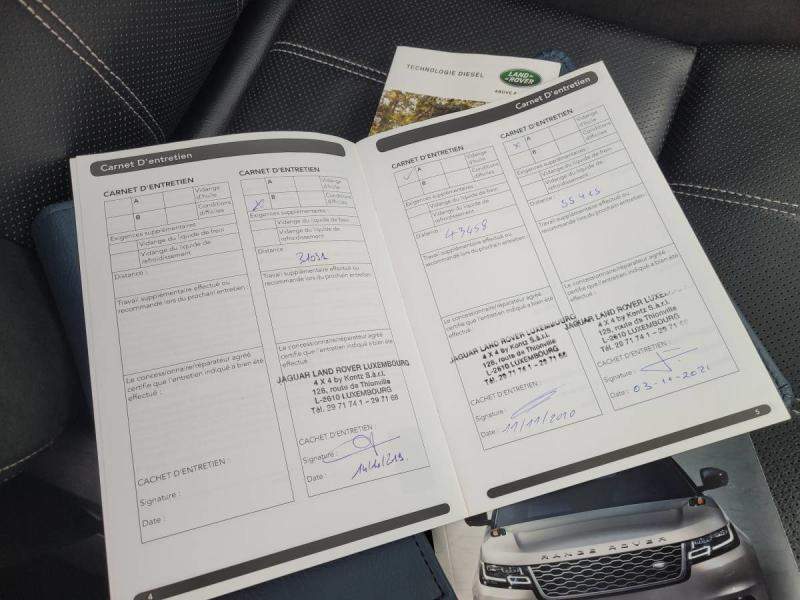 TECHNOLOGIE DIESEL
LAND ROVER
Carnet D'entretien
CARNET D'ENTRETIEN
A
Vidange d'huile
B
Conditions difficiles
Exigences supplémentaires :
Vidange du liquide de frein
Vidange du liquide de refroidissement
Distance :
Travail supplémentaire effectué ou
recommandé lors du prochain entretien
Le concessionnaire/réparateur agréé
certifie que l'entretien indiqué a bien été
effectué :
CACHET D'ENTRETIEN :
Signature :
Date :
4
CARNET D'ENTRETIEN
A
Vidange d'huile
B
Conditions difficiles
Exigences supplémentaires :
Vidange du liquide de frein
Vidange du liquide de refroidissement
Distance :
31091
Travail supplémentaire effectué ou
recommandé lors du prochain entretien
Le concessionnaire/réparateur agréé
certifie que l'entretien indiqué a bien été
effectué :
JAGUAR LAND ROVER LUXEMBOURG
4 X 4 by Kontz S.à.r.l.
128, route de Thionville
L-2610 LUXEMBOURG
Tél. 29 71 74 1 - 29 71 68
CACHET D'ENTRETIEN :
Signature :
Date :
Carnet D'entretien
CARNET D'ENTRETIEN
A
Vidange d'huile
B
Conditions difficiles
Exigences supplémentaires :
Vidange du liquide de frein
Vidange du liquide de refroidissement
Distance :
43458
Travail supplémentaire effectué ou
recommandé lors du prochain entretien
Le concessionnaire/réparateur agréé
certifie que l'entretien indiqué a bien été
effectué :
JAGUAR LAND ROVER LUXEMBOURG
4 X 4 by Kontz S.à.r.l.
128, route de Thionville
L-2610 LUXEMBOURG
Tél. 29 71 74 1 - 29 71 68
CACHET D'ENTRETIEN :
Signature :
Date : 11/11/2020
CARNET D'ENTRETIEN
A
Vidange d'huile
B
Conditions difficiles
Exigences supplémentaires :
Vidange du liquide de frein
Vidange du liquide de refroidissement
Distance :
55413
Travail supplémentaire effectué ou
recommandé lors du prochain entretien
Le concessionnaire/réparateur agréé
certifie que l'entretien indiqué a bien été
effectué :
JAGUAR LAND ROVER
4 X 4 by Kontz S.à.r.l.
128, route de Thionville
L-2610 LUXEMBOURG
Tél. 29 71 74 1 - 29 71
CACHET D'ENTRETIEN :
Signature :
Date : 03-11-2021
5
RANGE ROVER